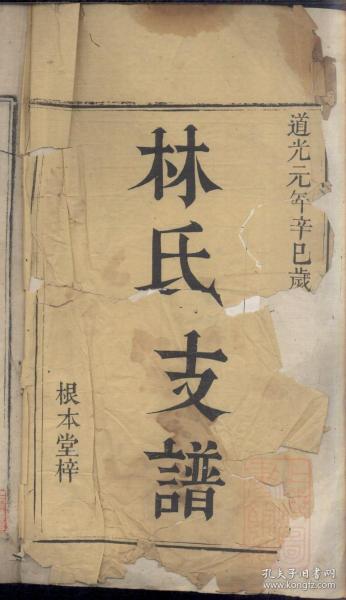 道光元年辛巳歲
林氏支譜
根本堂梓
孔夫子旧书网
www.kongfz.com